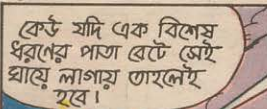 কেউ যদি এক বিশেষ
ধরণের পাতা বেটে সেই
ঘায়ে লাগায় তাহলেই
হবে।